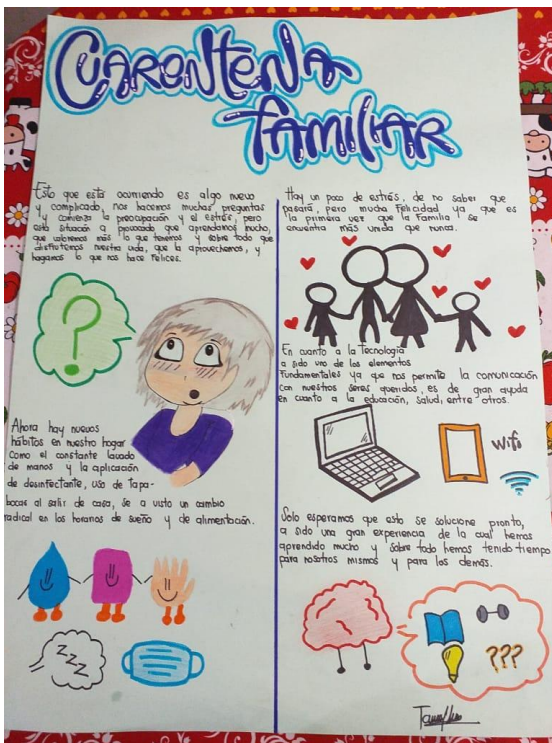 CUARENTENA
FAMILIAR
Esto que está ocurriendo es algo nuevo
y complicado, nos hacemos muchas preguntas
y comienza la preocupación y el estrés, pero
esta situación a provocado que aprendamos mucho,
que valoremos más lo que tenemos y sobre todo que
disfrutemos nuestra vida, que la aprovechemos, y
hagamos lo que nos hace felices.
Ahora hay nuevos
hábitos en nuestro hogar
como el constante lavado
de manos y la aplicación
de desinfectante, uso de Tapa-
bocas al salir de casa, se a visto un cambio
radical en los horarios de sueño y de alimentación.
zzz
Hay un poco de estrés, de no saber que
pasará, pero mucha felicidad ya que es
la primera vez que la Familia se
encuentra más unida que nunca.
En cuanto a la Tecnología
a sido uno de los elementos
Fundamentales ya que nos permite la comunicación
con nuestros seres queridos, es de gran ayuda
en cuanto a la educación, salud, entre otros.
wifi
Solo esperamos que esto se solucione pronto,
a sido una gran experiencia de la cual hemos
aprendido mucho y sobre todo hemos tenido tiempo
para nosotros mismos y para los demás.
???